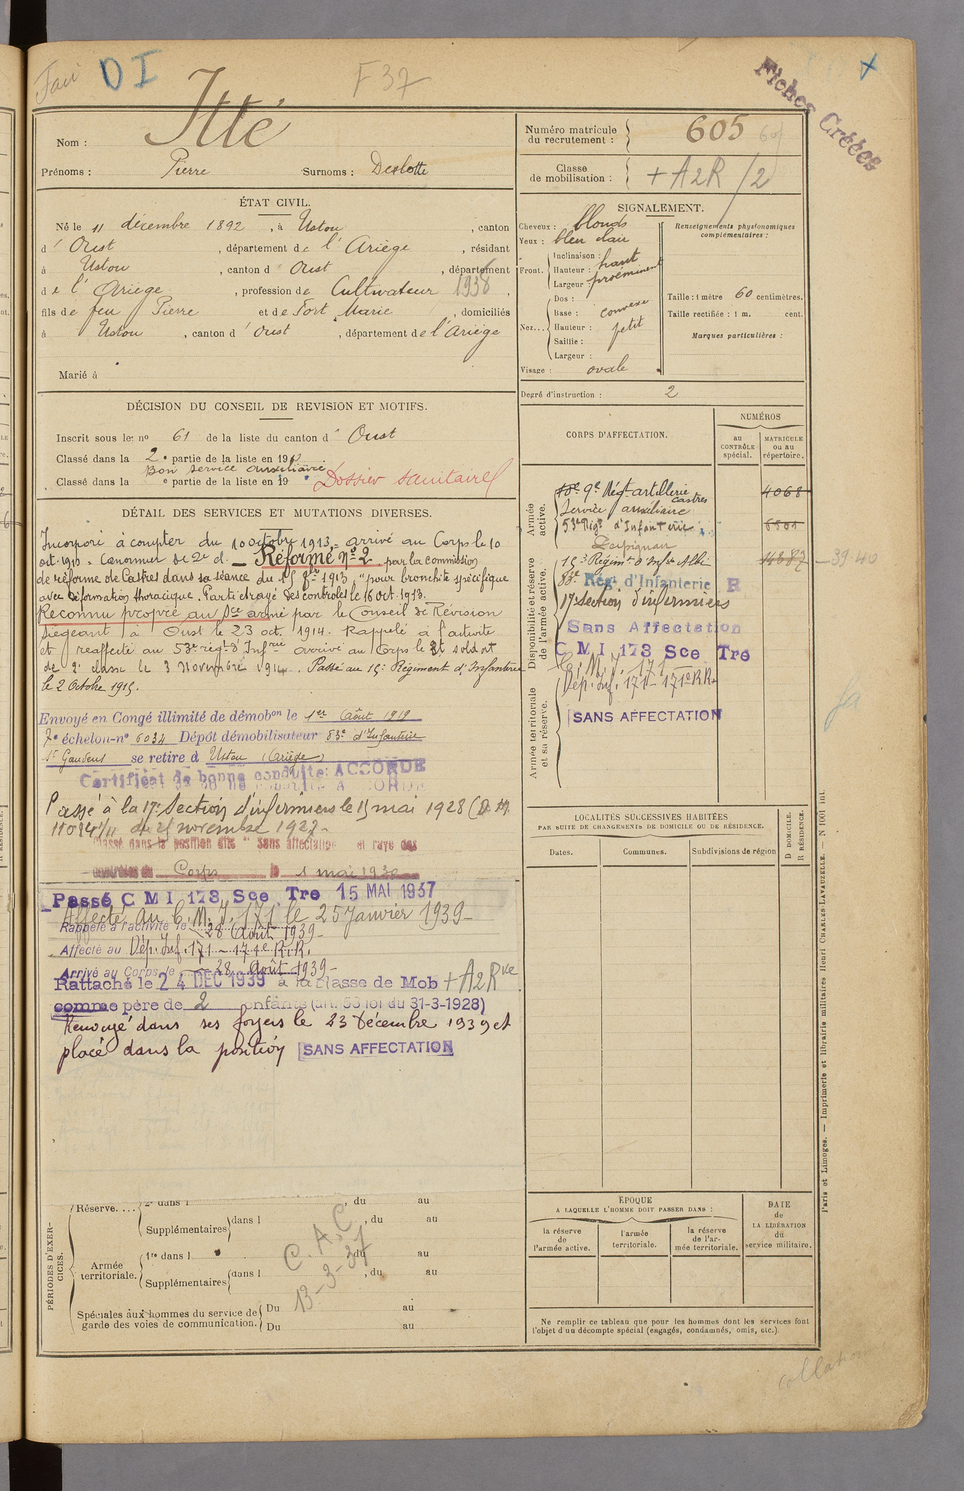 DI
F 37
Fiches Créées
Nom : Itté
Prénoms : Pierre Surnoms : Deslotte
ÉTAT CIVIL.
Né le 11 décembre 1892, à Ustou, canton
d'Oust, département de l'Ariège, résidant
à Ustou, canton d Oust, département
de l'Ariège, profession de Cultivateur 1938,
fils de feu Pierre et de Fort Marie, domiciliés
à Ustou, canton d'Oust, département de l'Ariège
Marié à
DÉCISION DU CONSEIL DE REVISION ET MOTIFS.
Inscrit sous le n° 61 de la liste du canton d' Oust
Classé dans la 2e partie de la liste en 191
Bon service auxiliaire
Classé dans la e partie de la liste en 19 Dossier sanitaire
DÉTAIL DES SERVICES ET MUTATIONS DIVERSES.
Incorporé à compter du 10 octobre 1913. arrivé au Corps le 10
oct. 1913. Canonnier de 2e cl. Réformé N° 2 par la commission
de réforme de Castres dans sa séance du 15 8bre 1913 "pour bronchite spécifique
avec déformation thoracique. Parti et rayé des contrôles le 16 oct. 1913.
Reconnu propre au Ser armé par le Conseil de Révision
siégeant à Oust le 23 oct. 1914. Rappelé à l'activité
et réaffecté au 53e régt d'Infrie arrivé au Corps le et soldat
de 2e classe le 3 Novembre 1914. Passé au 15e Régiment d'Infanterie
le 2 Octobre 1915.
Envoyé en Congé illimité de démobon le 1er Août 1919
7e échelon-n° 6034 Dépôt démobilisateur 83e d'Infanterie
St Gaudens se retire d Ustou (Ariège)
Certificat de bonne conduite: ACCORDE
Passé à la 17e Section d'infirmiers le 15 mai 1928 (D. M.
11034/11 du 25 novembre 1927.
Classé dans la position dite "Sans affectation" et rayé des
contrôles du Corps le 1 mai 1930
Passé C M I 173 Sce Tre 15 MAI 1937
Affecté au C. M. I. 171 le 25 Janvier 1939
Rappelé à l'activité le 28 Août 1939
Affecté au Dép. Inf. 171 - 171e R.R.
Arrivé au Corps le 28 Août 1939
Rattaché le 24 DEC 1939 à la classe de Mob + A2Rve
comme père de 2 enfants (art. 58 loi du 31-3-1928)
Renvoyé dans ses foyers le 23 Décembre 1939 et
placé dans la position SANS AFFECTATION
PÉRIODES D'EXERCICES.
Réserve.... 2e dans l , du au
Supplémentaires dans l , du au
Armée territoriale. 1re dans l du au
Supplémentaires dans l , du au
C. A. C
13-3-37
Spéciales aux hommes du service de garde des voies de communication. Du au
Du au
Numéro matricule du recrutement : 605
Classe de mobilisation : + A2R /2
SIGNALEMENT.
Cheveux : blonds
Yeux : bleu clair
Front. Inclinaison :
Hauteur : haut
Largeur : proéminent
Nez... Dos :
Base : convexe
Hauteur : petit
Saillie :
Largeur :
Visage : ovale
Renseignements physionomiques complémentaires :
Taille : 1 mètre 60 centimètres.
Taille rectifiée : 1 m. cent.
Marques particulières :
Degré d'instruction : 2
CORPS D'AFFECTATION.
NUMÉROS
AU CONTRÔLE spécial.
MATRICULE ou au répertoire.
Armée active.
9e Régt artillerie Castres 4068
Service auxiliaire
53e Régt d'Infanterie 6501
Perpignan
Disponibilité et réserve de l'armée active.
15e Régiment d'Infrie Albi 14887 39-40
83e Régt d'Infanterie R
17e Section d'infirmiers
Sans Affectation
C M I 173 Sce Tre
C. M. I. 171
Armée territoriale et sa réserve.
Dép. Inf. 171 - 171e R.R.
SANS AFFECTATION
LOCALITÉS SUCCESSIVES HABITÉES
PAR SUITE DE CHANGEMENTS DE DOMICILE OU DE RÉSIDENCE.
Dates. Communes. Subdivisions de région
D DOMICILE. R RÉSIDENCE.
ÉPOQUE
A LAQUELLE L'HOMME DOIT PASSER DANS :
la réserve de l'armée active.
l'armée territoriale.
la réserve de l'armée territoriale.
DATE de LA LIBÉRATION du service militaire.
Ne remplir ce tableau que pour les hommes dont les services font
l'objet d'un décompte spécial (engagés, condamnés, omis, etc.).
Paris et Limoges. — Imprimerie et librairie militaires Henri CHARLES-LAVAUZELLE. — N° 1001 int.